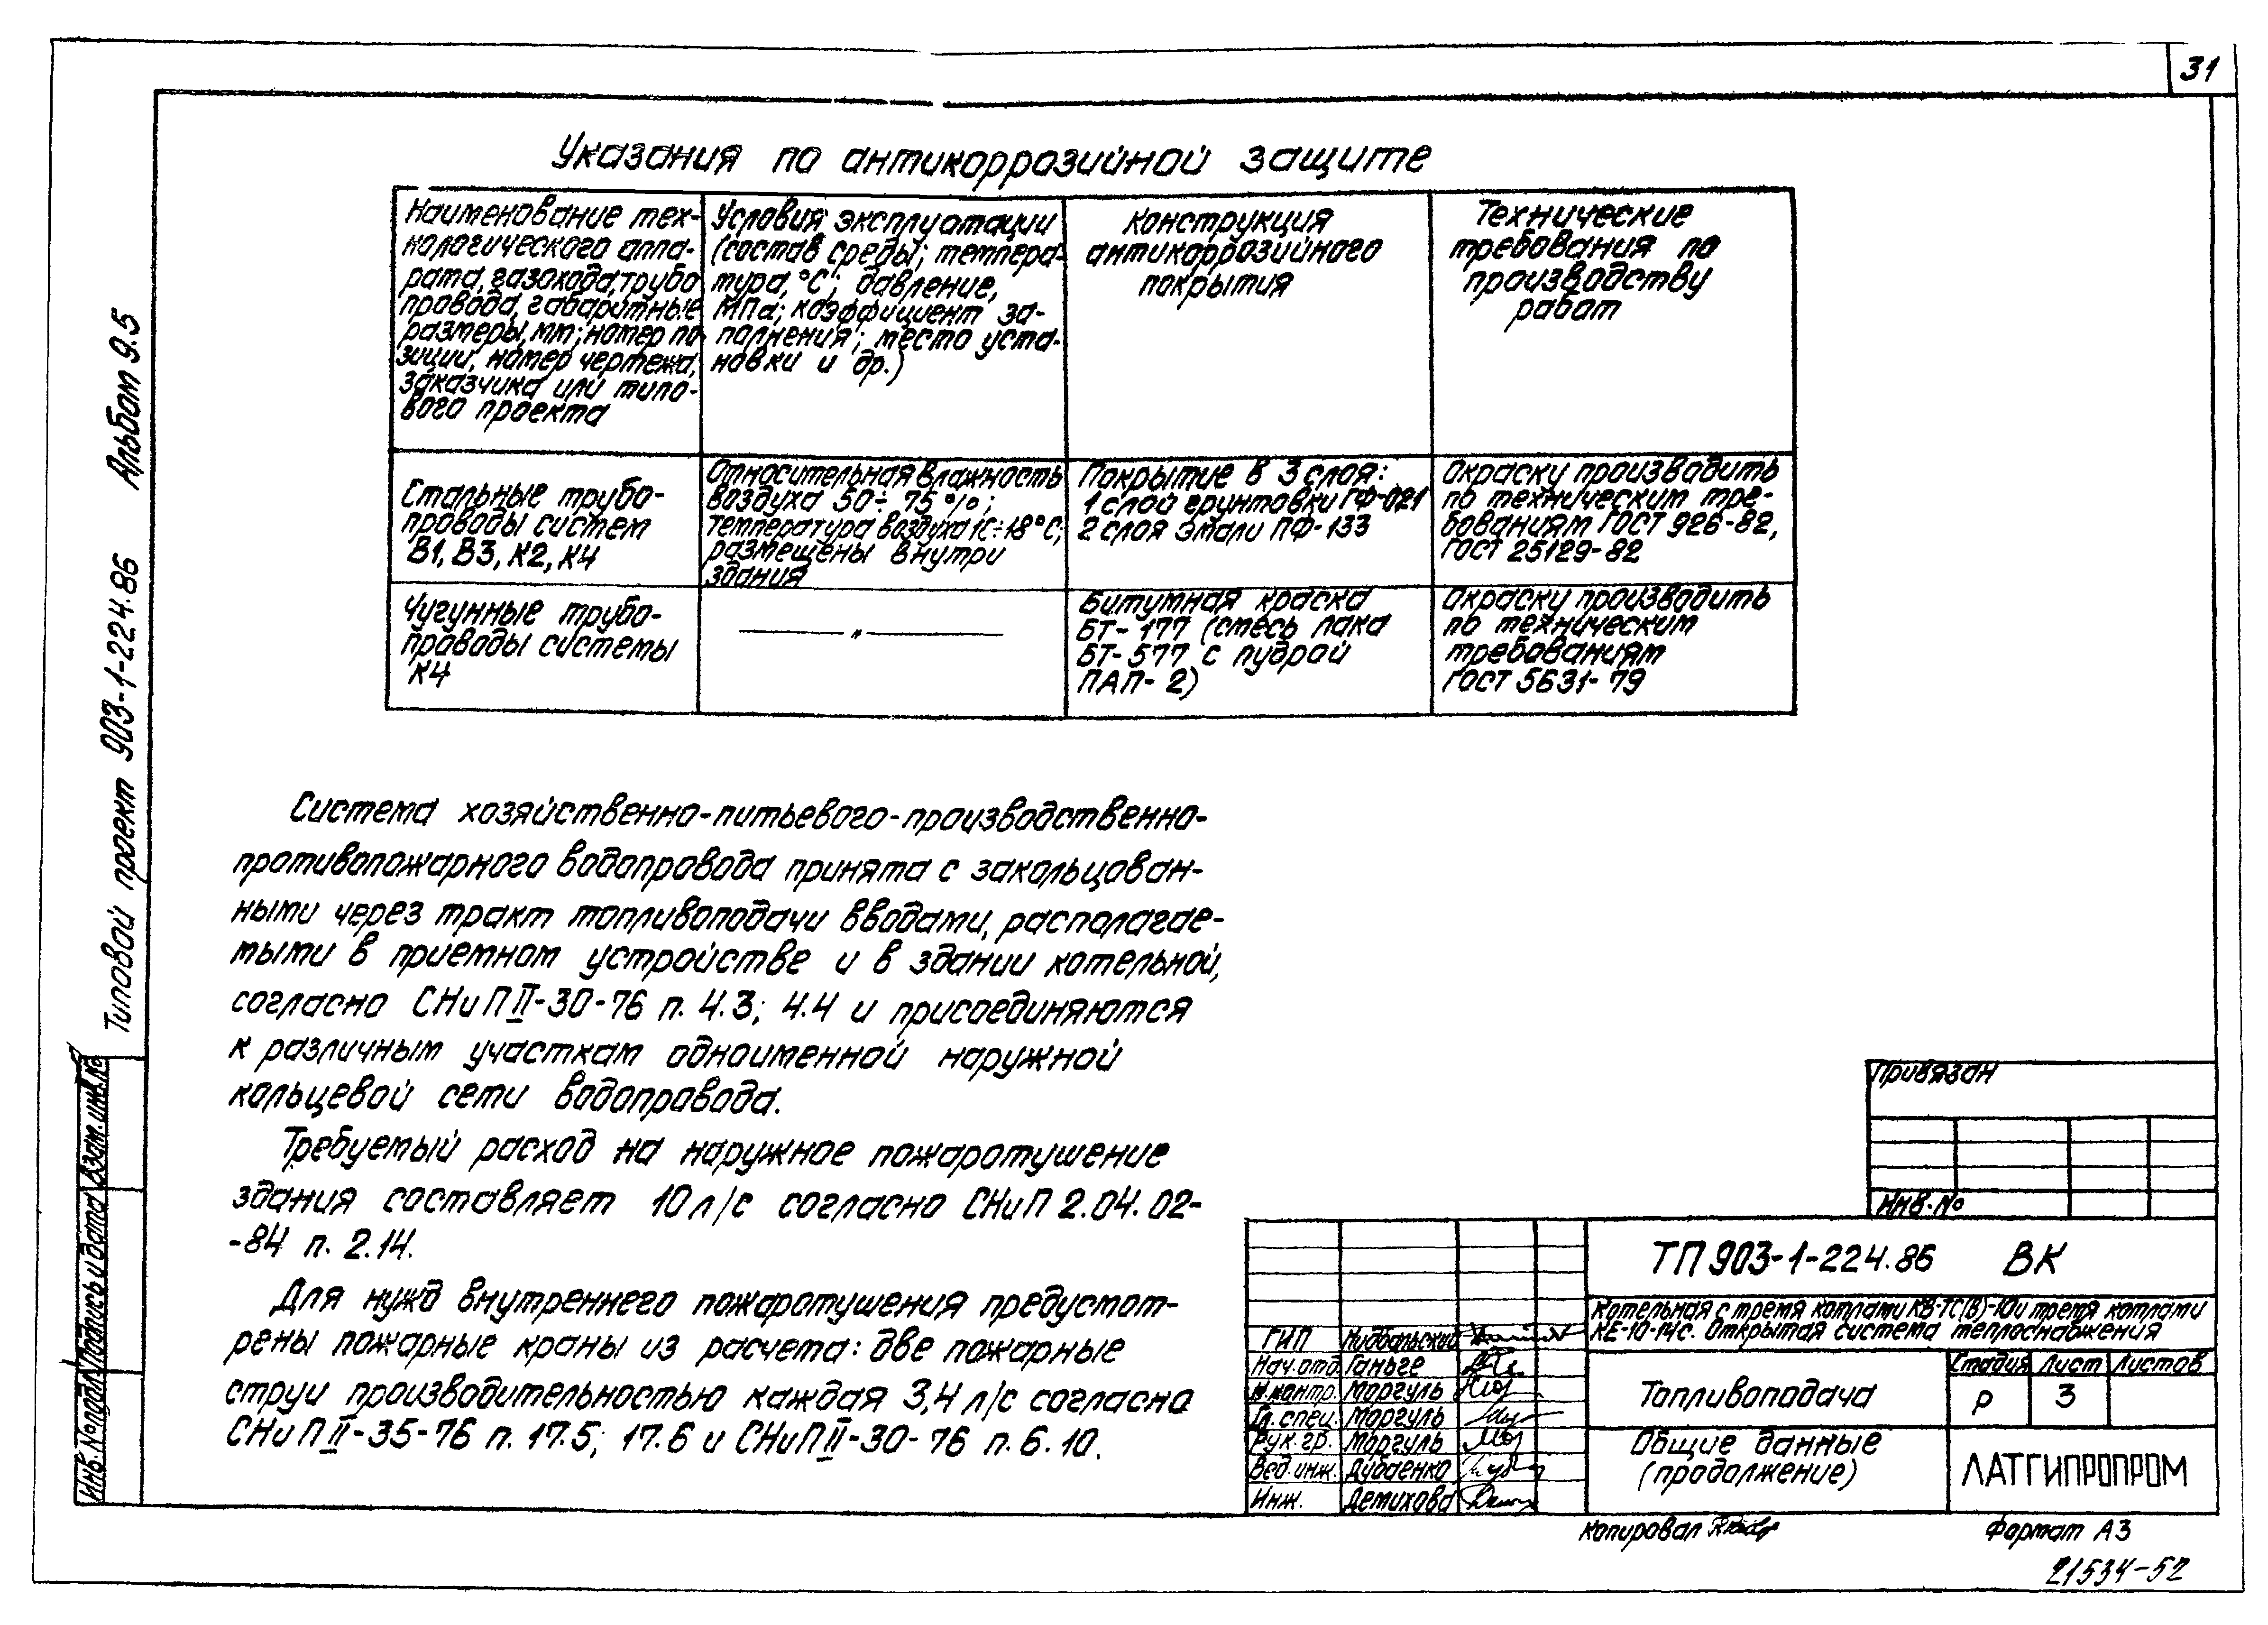 31
Указания по антикоррозийной защите
Наименование тех-
нологического аппа-
рата, газохода, трубо
провода, габаритные
размеры, мм; номер по
зиции, номер чертежа,
заказчика или типо-
вого проекта
Условия эксплуатации
(состав среды; темпера-
тура, °С; давление,
МПа; коэффициент за-
полнения; место уста-
новки и др.)
Конструкция
антикоррозийного
покрытия
Технические
требования по
производству
работ
Стальные трубо-
проводы систем
В1, В3, К2, К4
Относительная влажность
воздуха 50÷75%;
температура воздуха 10÷18°С;
размещены внутри
здания
Покрытие в 3 слоя:
1 слой грунтовки ГФ-021
2 слоя эмали ПФ-133
Окраску производить
по техническим тре-
бованиям ГОСТ 926-82,
ГОСТ 25129-82
Чугунные трубо-
проводы системы
К4
—— " ——
Битумная краска
БТ-177 (смесь лака
БТ-577 с пудрой
ПАП-2)
Окраску производить
по техническим
требованиям
ГОСТ 5631-79
Система хозяйственно-питьевого-производственно-
противопожарного водопровода принята с закольцован-
ными через тракт топливоподачи вводами, располагае-
мыми в приемном устройстве и в здании котельной,
согласно СНиП II-30-76 п. 4.3; 4.4 и присоединяются
к различным участкам одноименной наружной
кольцевой сети водопровода.
Требуемый расход на наружное пожаротушение
здания составляет 10 л/с согласно СНиП 2.04.02-
-84 п. 2.14.
Для нужд внутреннего пожаротушения предусмот-
рены пожарные краны из расчета: две пожарные
струи производительностью каждая 3,4 л/с согласно
СНиП II-35-76 п. 17.5; 17.6 и СНиП II-30-76 п. 6.10.
Типовой проект 903-1-224.86 Альбом 9.5
Инв. № подл. Подпись и дата Взам. инв. №
Привязан
Инв. №
ТП 903-1-224.86 ВК
Котельная с тремя котлами КВ-ТС(В)-10 и тремя котлами
КЕ-10-14с. Открытая система теплоснабжения
ГИП
Нач. отд. Ганьге
Н. контр. Моргуль
Гл. спец. Моргуль
Рук. гр. Моргуль
Вед. инж. Дубаенко
Инж. Демихова
Топливоподача
Стадия Лист Листов
Р 3
Общие данные
(продолжение)
ЛАТГИПРОПРОМ
Копировал
Формат А3
21534-52